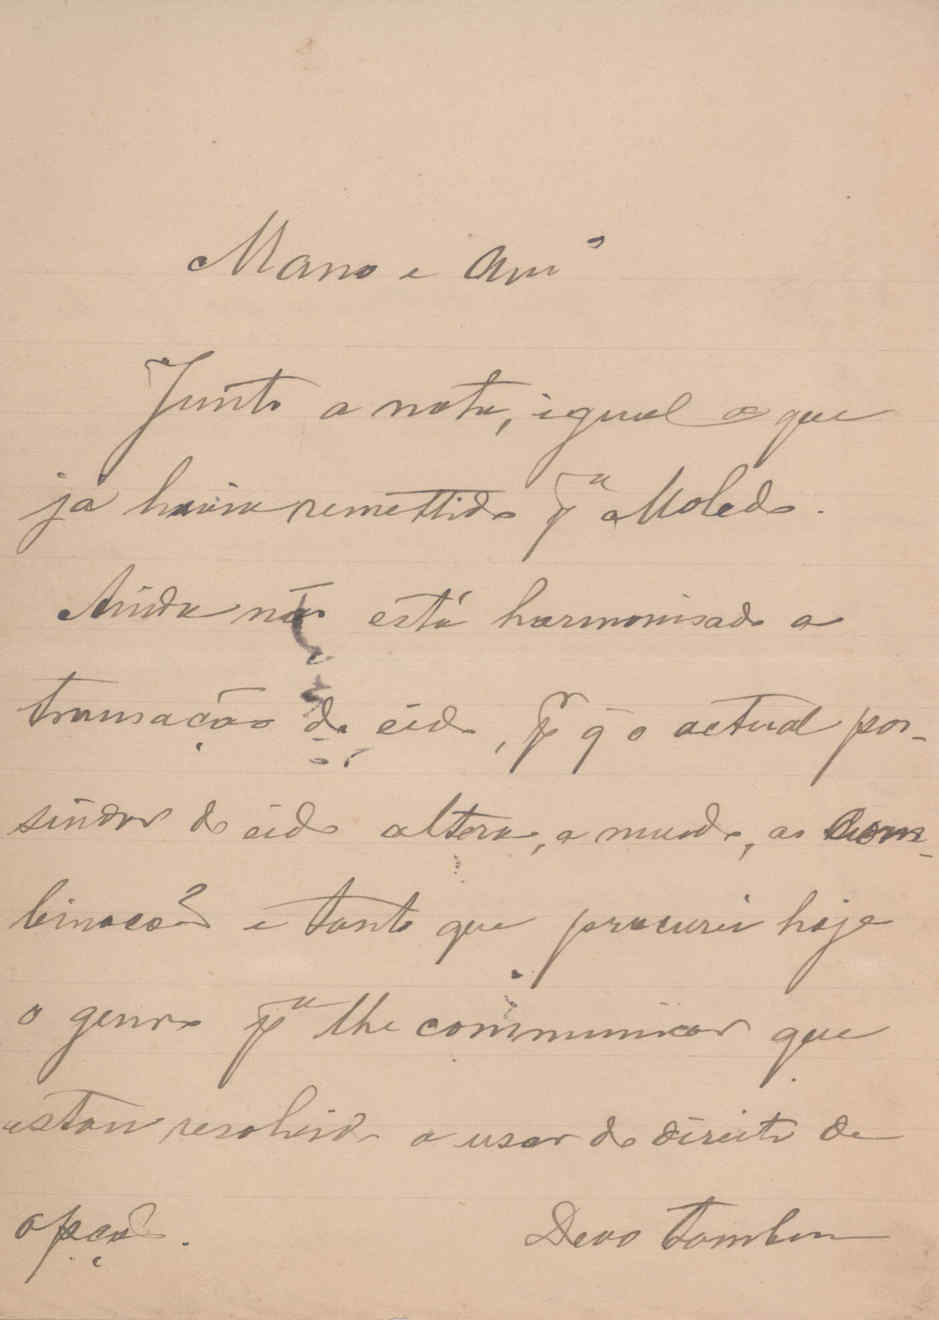 Mano e Amº
Junto a nota, igual a que
já havia remettido pª Moledo.
Ainda não está harmonisado a
transação do eido, pr q̃ o actual pos-
suidor do eido altera, a miudo, as com-
binações e tanto que procurei hoje
o genro pª lhe communicar que
estou resolvido a usar do direito de
opção. Devo tambem